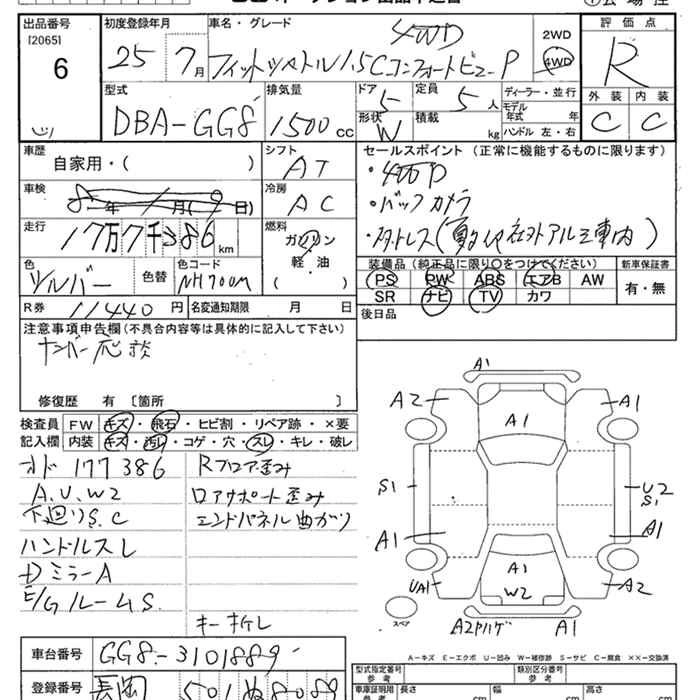 出品番号 初度登録年月 車名・グレード 評価点
[2065] 25 7月 4WD 2WD R
6 フィットシャトル1.5Cコンフォートビュー P 4WD
型式 排気量 ドア 定員 ディーラー・並行 外装 内装
DBA-GG8 1500cc 5 5人 モデル年式 年 C C
形状 W 積載 kg ハンドル 左・右
車歴 自家用・( ) シフト AT セールスポイント (正常に機能するものに限ります)
車検 年 月( 日) 冷房 AC ・4WD P
・バックカメラ
走行 17万7千386km 燃料 ガソリン 軽・油 ( )
色 シルバー 色替 色コード NH700m 装備品(純正品に限り〇をつけてください) 新車保証書
PS PW ABS エアB AW 有・無
SR ナビ TV カワ
R券 11440円 名変通知期限 月 日 後日品
注意事項申告欄(不具合内容等は具体的に記入して下さい)
ナンバー応談
修復歴 有 〔箇所 〕
検査員 FW キズ・飛石・ヒビ割・リペア跡・×要
記入欄 内装 キズ・汚レ・コゲ・穴・スレ・キレ・破レ
オド 177386 Rフロア歪み
A.U.W2 ロアサポート歪み
下廻りS.C エンドパネル曲がり
ハンドルスレ
DミラーA
E/GルームS
キー折レ
A1
A2 A1 A1
S1 U2 S1
A1 A1
UA1 A1 W2 A2
スペア A2ヤハゲ A1
A-キズ E-エクボ U-凹み W-補修跡 S-サビ C-腐食 ××-交換済
車台番号 GG8-3101889 型式指定番号 参考 類別区分番号
登録番号 長岡 501 ぬ 8089 車庫証明用 参考 長さ cm 幅 cm 高さ cm